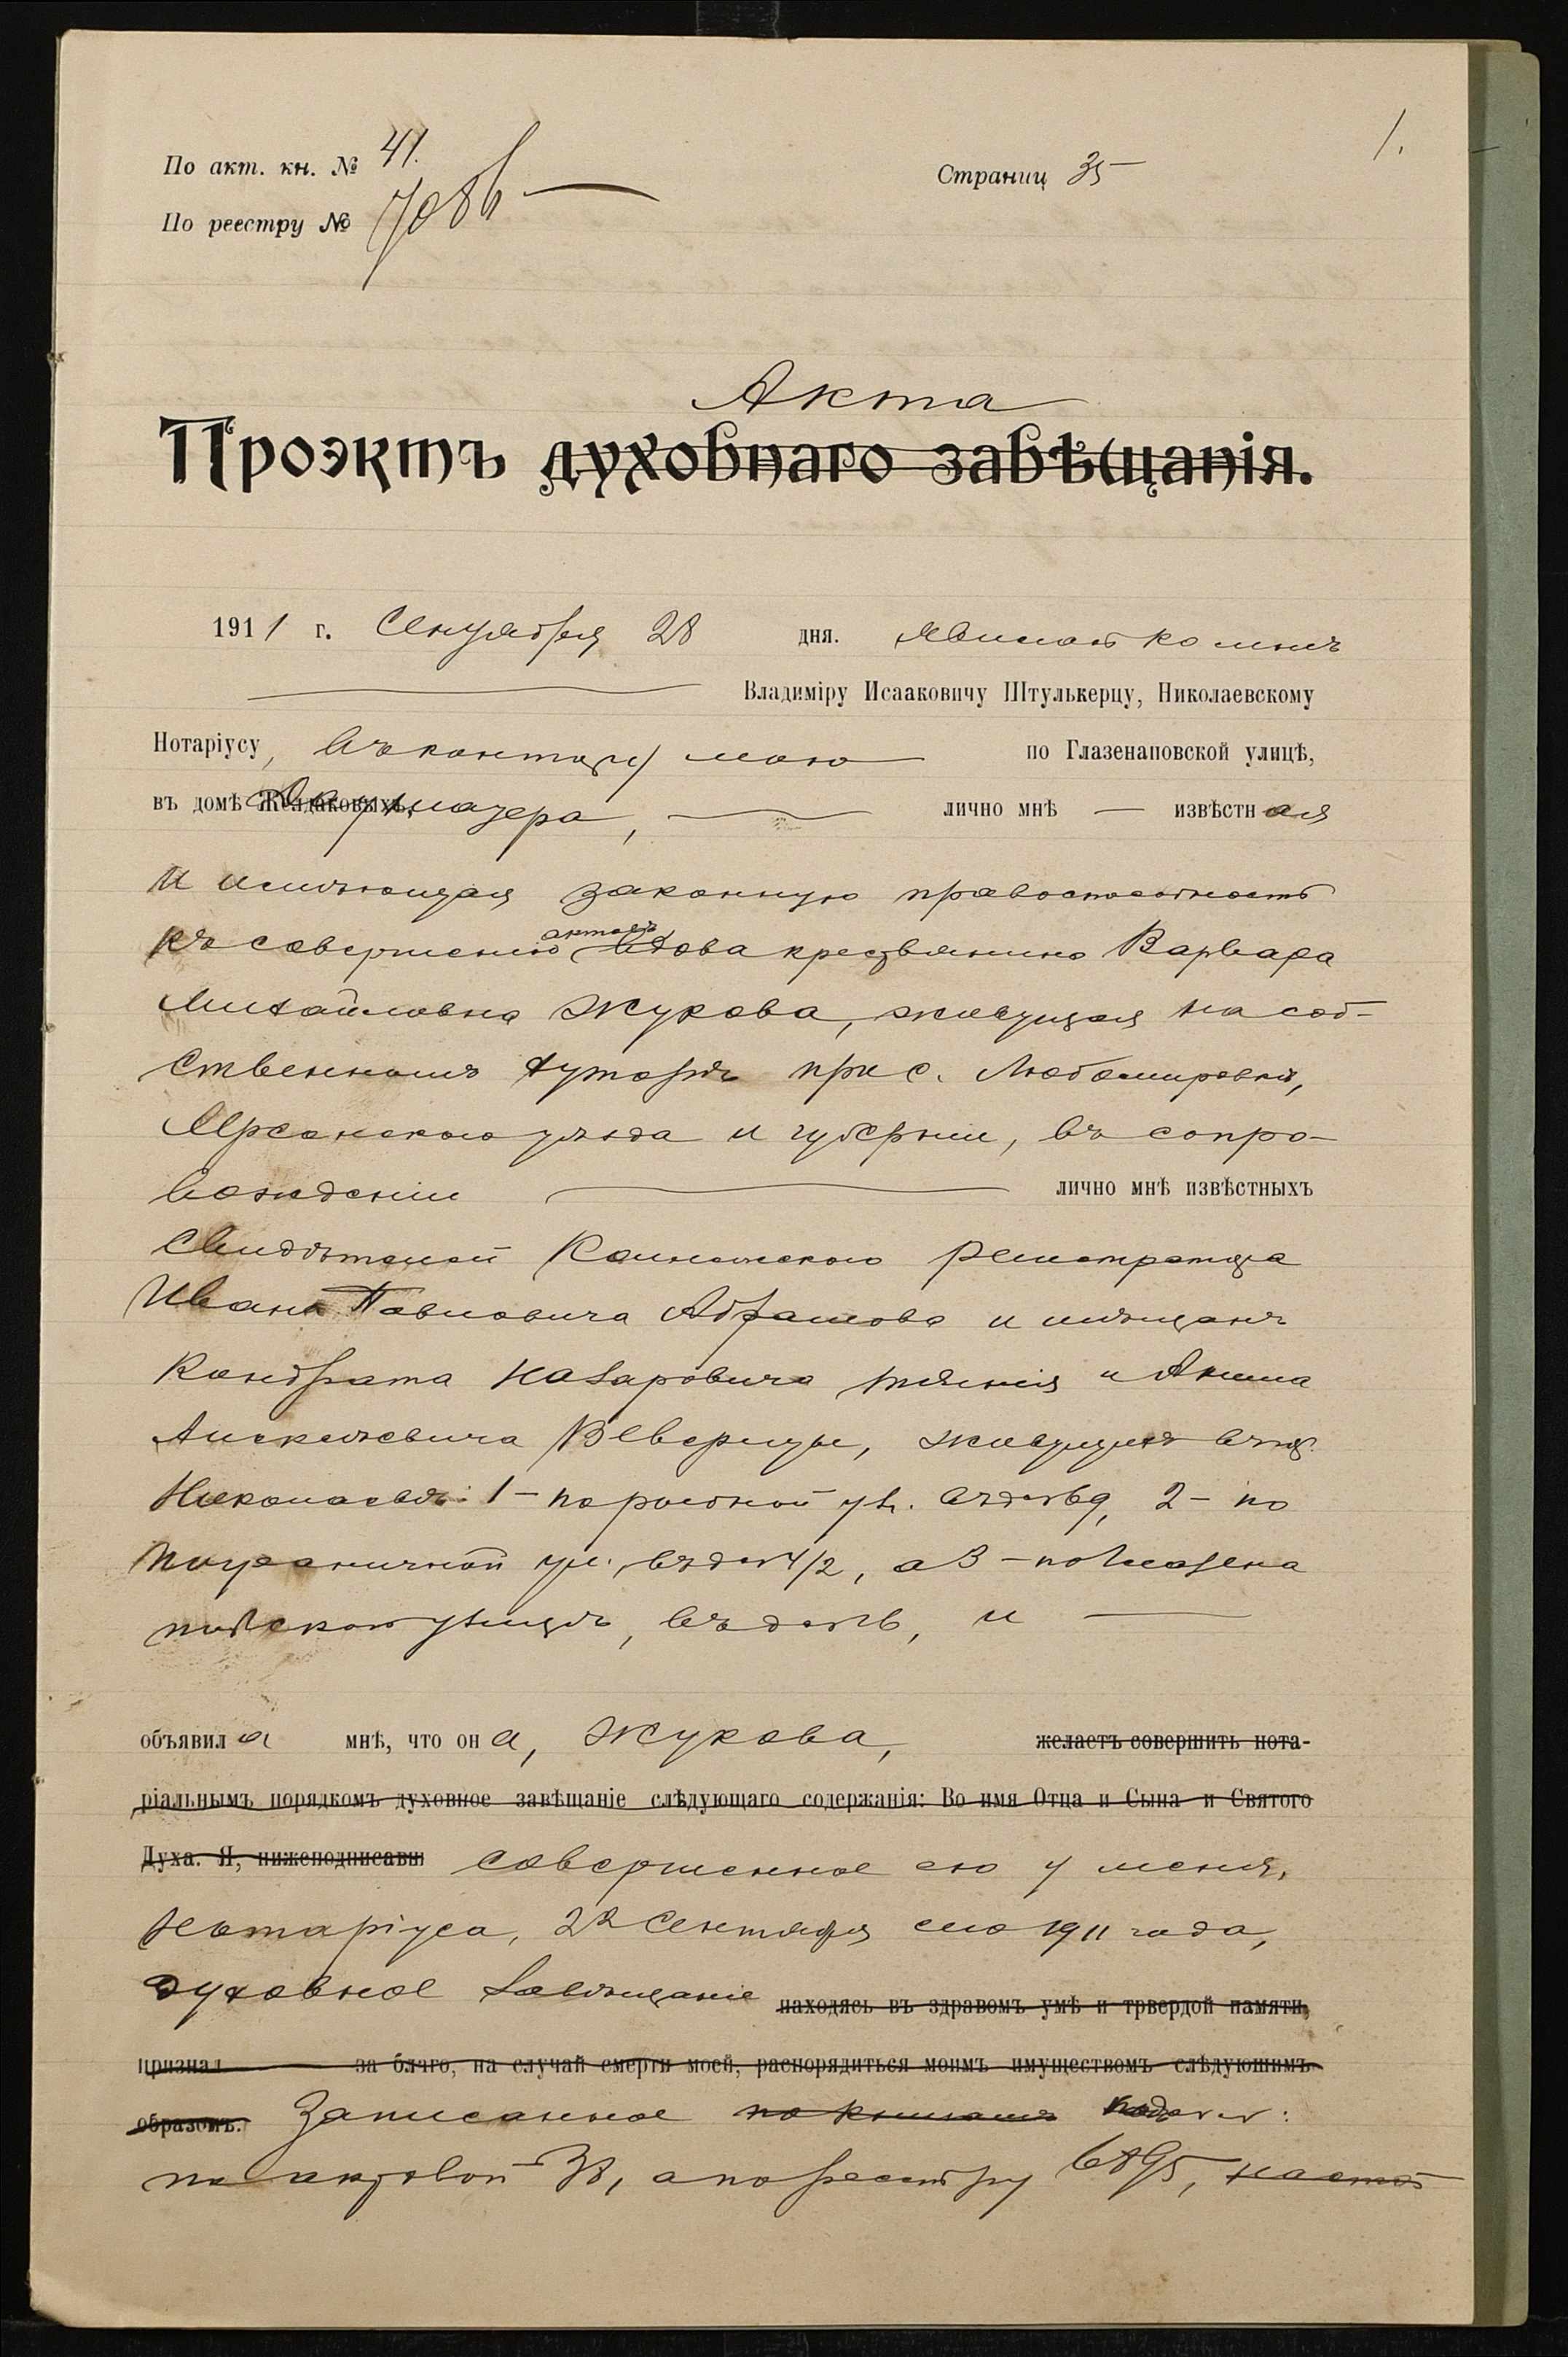 1.
По акт. кн. № 41.
Страниц 35
По реестру № 7086
Акта
Проэктъ духовнаго завѣщанія.
1911 г. Сентября 28 дня. явилась ко мнѣ
Владиміру Исааковичу Штулькерцу, Николаевскому
Нотаріусу, въ контору мою по Глазенаповской улицѣ,
въ домѣ Желдаковыхъ, лично мнѣ — извѣстная
и имѣющая законную правоспособность
актовъ
къ совершенію вдова крестьянина Варвара
Михайловна Жукова, живущая на соб-
ственномъ хуторѣ при с. Любомировкѣ,
Херсонскаго уѣзда и губерніи, въ сопро-
вожденіи лично мнѣ извѣстныхъ
свидѣтелей Коллежскаго Регистратора
Ивана Павловича Абрамова и мѣщанъ
Кондрата Назаровича и Акима
Алексѣевича Веверицы, живущихъ въ г.
Николаевѣ: 1- по ул. 2- по
Пограничной ул., а 3 - по Глазена
повской улицѣ, и
объявила мнѣ, что она, Жукова, желаетъ совершить нота-
ріальнымъ порядкомъ духовное завѣщаніе слѣдующаго содержанія: Во имя Отца и Сына и Святого
Духа. Я, нижеподписавш совершенное ею у меня,
Нотаріуса, 22 Сентября сего 1911 года,
духовное завѣщаніе находясь въ здравомъ умѣ и трвердой памяти,
признал за благо, на случай смерти моей, распорядиться моимъ имуществомъ слѣдующимъ
образомъ. Записанное по книгамъ
по актовой 38, а по реестру 6895, настоя